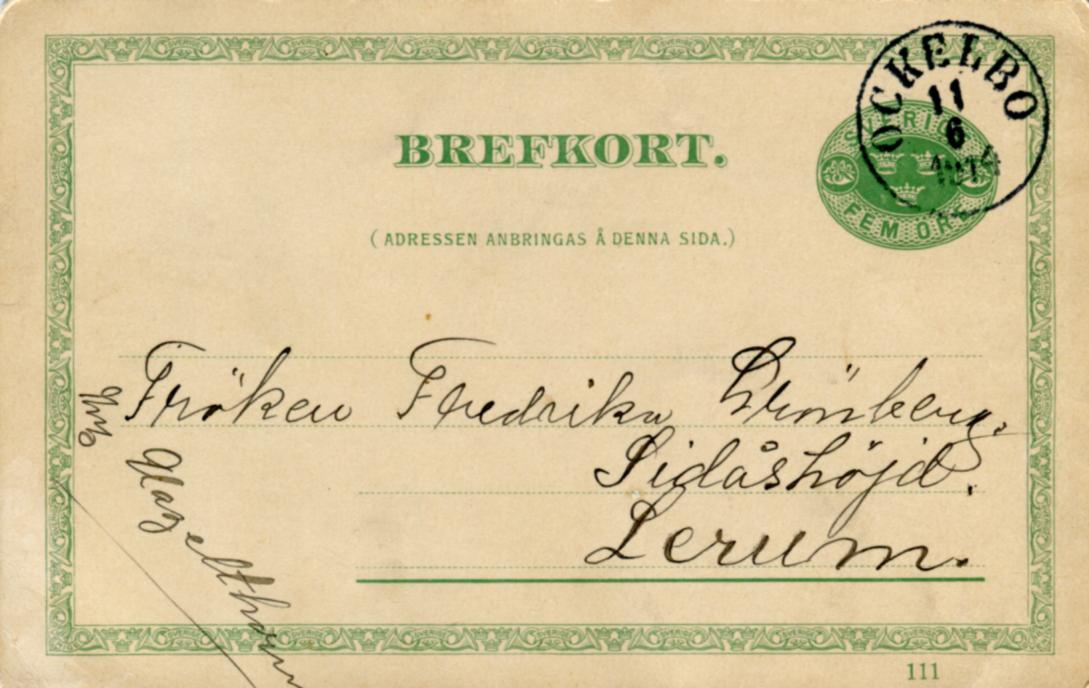 BREFKORT.
(ADRESSEN ANBRINGAS Å DENNA SIDA.)
OCKELBO
11
6
SVERIGE
FEM ÖRE
Fröken Fredrika Grönberg.
Sidåshöjd.
Lerum.
111